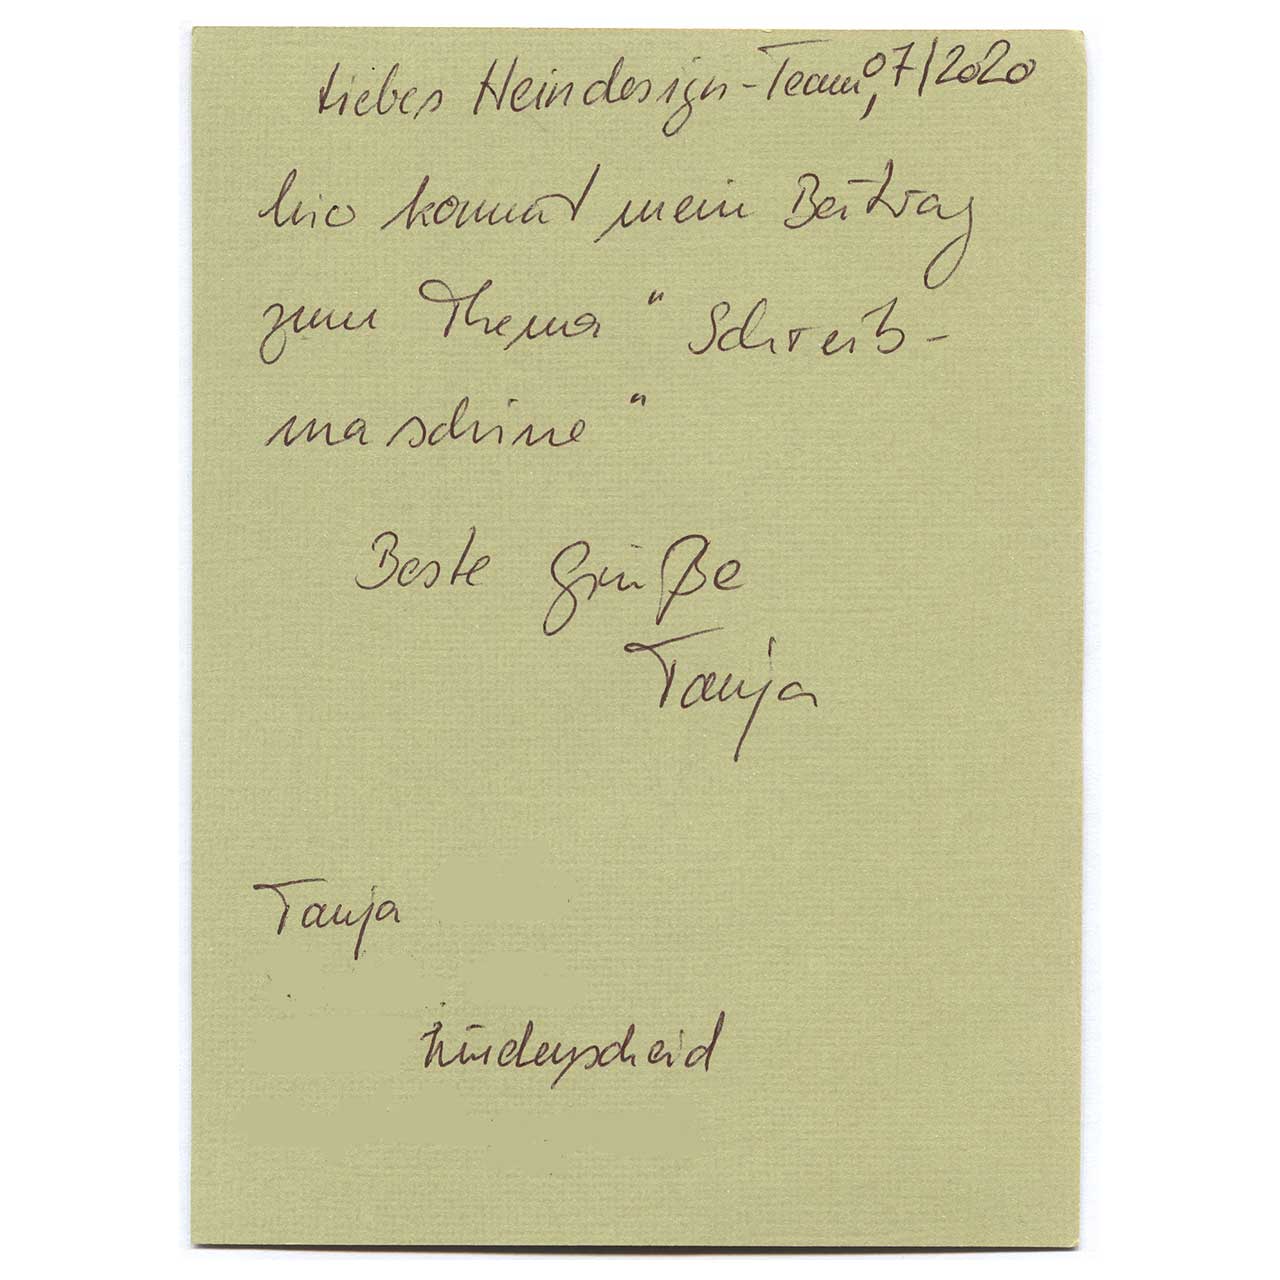 Liebes Heindesign-Team, 07/2020
hier kommt mein Beitrag
zum Thema " Schreib-
maschine "
Beste Grüße
Tanja
Tanja
Lüdenscheid